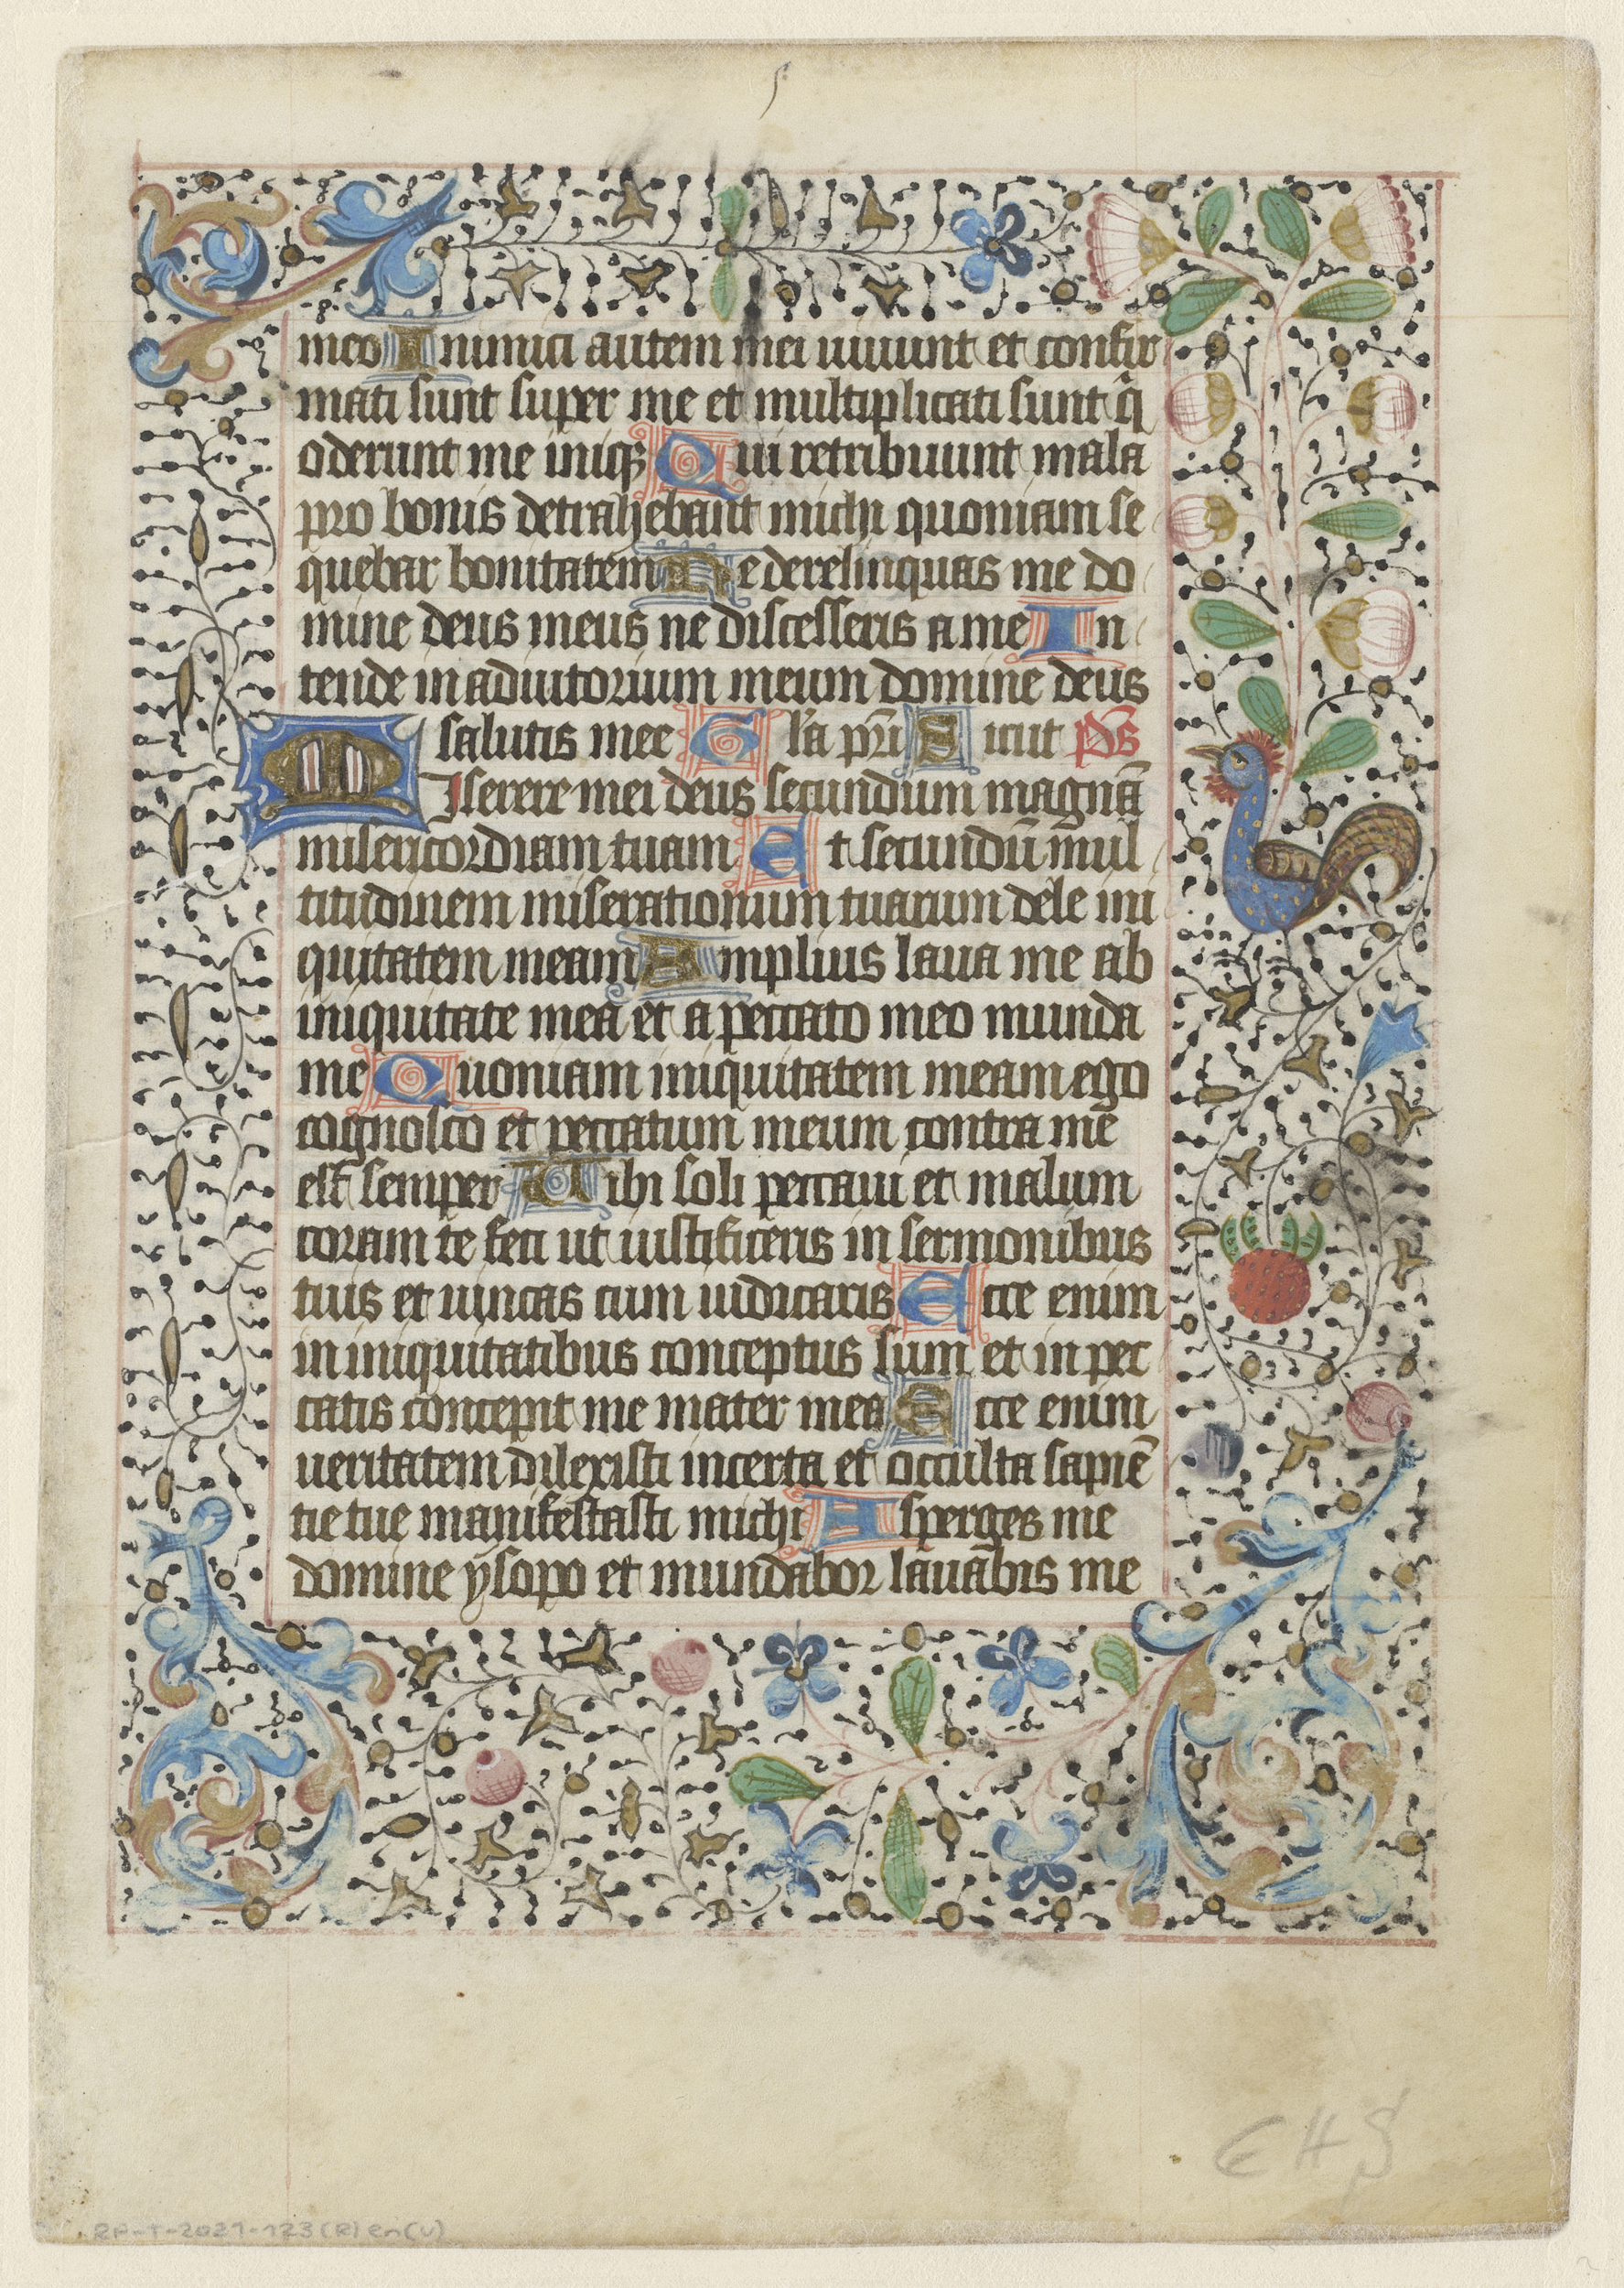 meo Inimici autem mei uiuunt et confir
mati sunt super me et multiplicati sunt q̄
oderunt me iniqꝫ Qui retribuunt mala
pro bonis detrahebant michi quoniam se
quebar bonitatem Ne derelinquas me do
mine deus meus ne discesseris a me In
tende in adiutorium meum domine deus
salutis mee Gl'a pr̄i Sicut ps̄
MIserere mei deus secundum magnā
misericordiam tuam Et secundū mul
titudinem miserationum tuarum dele ini
quitatem meam Amplius laua me ab
iniquitate mea et a peccato meo munda
me Quoniam iniquitatem meam ego
cognosco et peccatum meum contra me
est semper Tibi soli peccaui et malum
coram te feci ut iustificeris in sermonibus
tuis et uincas cum iudicaris Ecce enim
in iniquitatibus conceptus sum et in pec
catis concepit me mater mea Ecce enim
ueritatem dilexisti incerta et occulta sapiē
tie tue manifestasti michi Asperges me
domine ysopo et mundabor lauabis me
EHS
RP-T-2021-123(R) en (V)